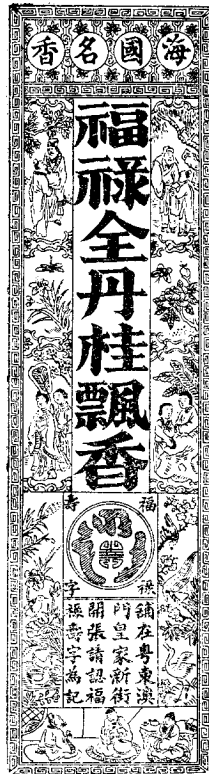 海國名香
福祿全丹桂飄香
福祿
壽字
鋪在粵東澳
門皇家新街
開張請認福
祿壽字為記